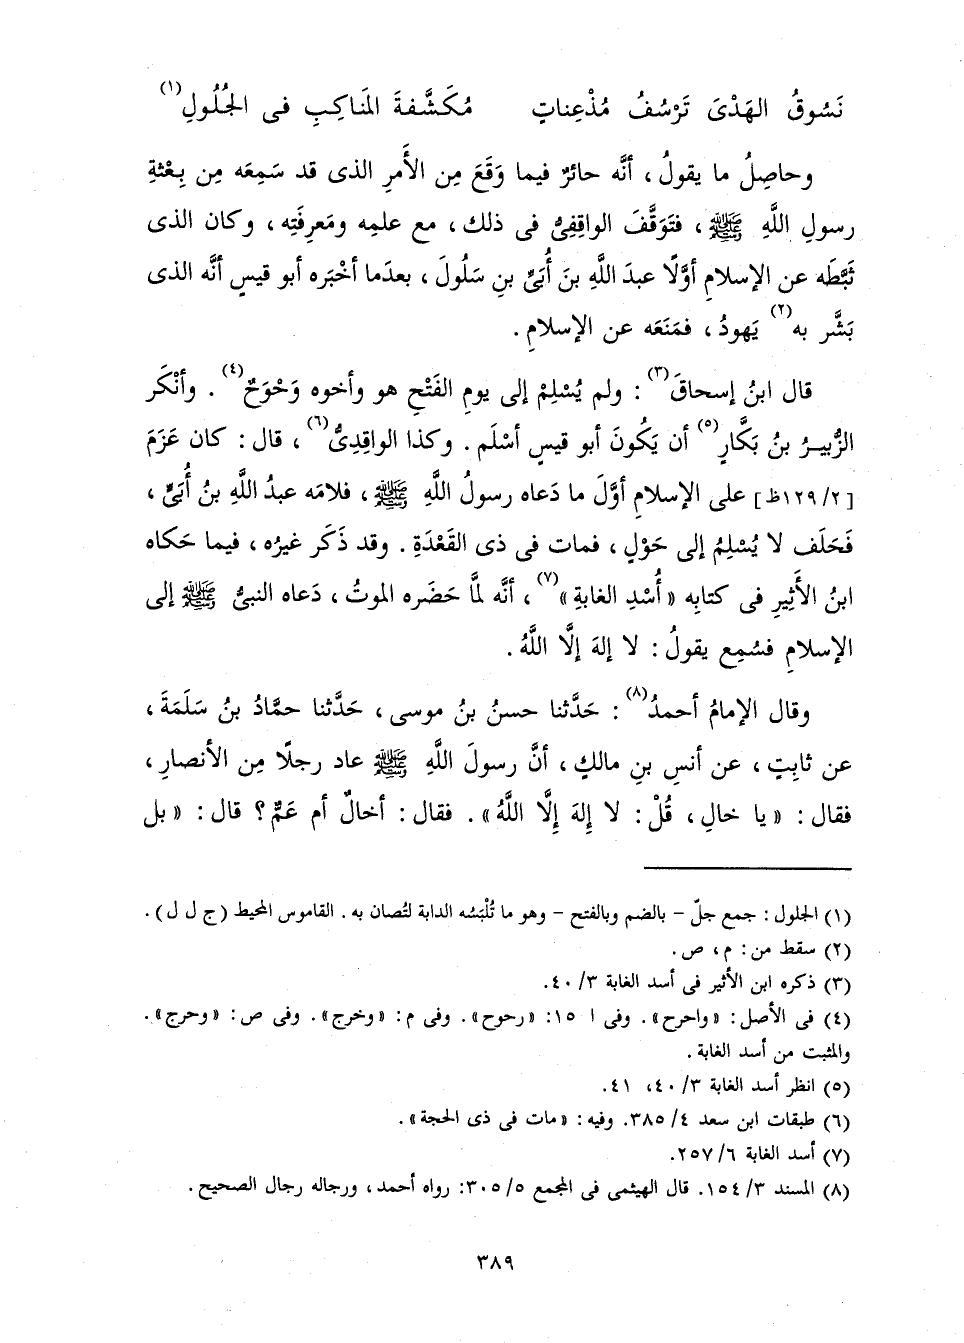 نَسُوقُ الهَدْىَ تَرْسُفُ مُذْعِناتٍ مُكَشَّفةَ المَناكِبِ فى الجُلُولِ(١)
وحاصِلُ ما يقولُ ، أنَّه حائرٌ فيما وَقَعَ مِن الأَمرِ الذى قد سَمِعَه مِن بِعْثةِ
رسولِ اللَّهِ ﷺ ، فتَوَقَّفَ الواقِفِىُّ فى ذلك ، مع علمِه ومَعرِفَتِه ، وكان الذى
ثَبَّطَه عن الإسلامِ أوَّلًا عبدَ اللَّهِ بنَ أُبَىِّ بنِ سَلُولَ ، بعدَما أخْبَره أبو قيسٍ أنَّه الذى
بَشَّر به(٢) يَهودُ ، فمَنَعَه عن الإسلامِ .
قال ابنُ إسحاقَ(٣) : ولم يُسْلِمْ إلى يومِ الفَتْحِ هو وأخوه وَحْوَحٌ(٤) . وأنْكَر
الزُّبيرُ بنُ بَكَّارٍ(٥) أن يَكُونَ أبو قيسٍ أسْلَم . وكذا الواقِدِىُّ(٦) ، قال : كان عَزَمَ
[٢/ ١٢٩ظ] على الإسلامِ أوَّلَ ما دَعاه رسولُ اللَّهِ ﷺ ، فلامَه عبدُ اللَّهِ بنُ أُبَىٍّ ،
فَحَلَف لا يُسْلِمُ إلى حَوْلٍ ، فمات فى ذى القَعْدَةِ . وقد ذَكَر غيرُه ، فيما حَكاه
ابنُ الأَثِيرِ فى كتابِه « أُسْدِ الغابةِ »(٧) ، أنَّه لمَّا حَضَره الموتُ ، دَعاه النبىُّ ﷺ إلى
الإسلامِ فسُمِع يقولُ : لا إلهَ إلَّا اللَّهُ .
وقال الإمامُ أحمدُ(٨) : حَدَّثنا حسنُ بنُ موسى ، حَدَّثنا حمَّادُ بنُ سَلَمَةَ ،
عن ثابِتٍ ، عن أنسِ بنِ مالكٍ ، أنَّ رسولَ اللَّهِ ﷺ عاد رجلًا مِن الأنصارِ ،
فقال : « يا خالِ ، قُلْ : لا إِلهَ إِلَّا اللَّهُ » . فقال : أخالٌ أم عَمٌّ ؟ قال : « بل
(١) الجلول : جمع جلّ - بالضم وبالفتح - وهو ما تُلْبَسُه الدابة لتُصان به . القاموس المحيط (ج ل ل) .
(٢) سقط من : م ، ص .
(٣) ذكره ابن الأثير فى أسد الغابة ٣/ ٤٠.
(٤) فى الأصل : « واحرح » . وفى ا ١٥: « رحوح » . وفى م : « وخرج » . وفى ص : « وحرج » .
والمثبت من أسد الغابة .
(٥) انظر أسد الغابة ٣/ ٤٠، ٤١.
(٦) طبقات ابن سعد ٤/ ٣٨٥. وفيه : « مات فى ذى الحجة » .
(٧) أسد الغابة ٦/ ٢٥٧.
(٨) المسند ٣/ ١٥٤. قال الهيثمى فى المجمع ٥/ ٣٠٥: رواه أحمد ، ورجاله رجال الصحيح .
٣٨٩